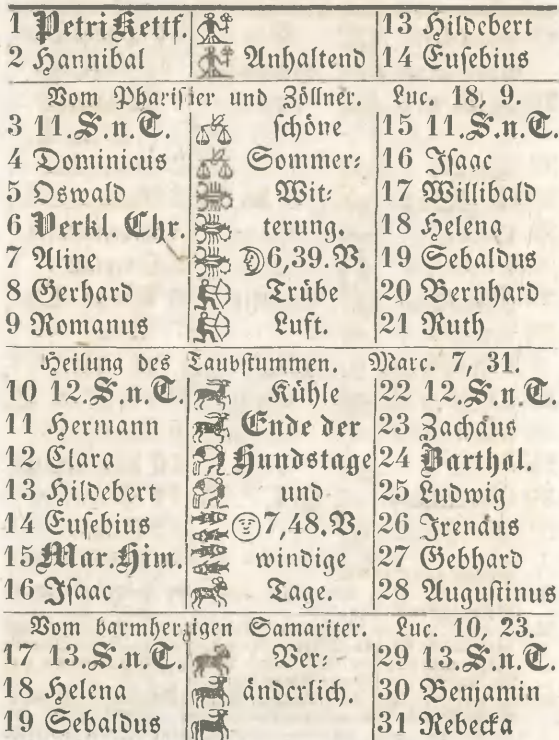 1 Petri Kettf. 13 Hildebert
2 Hannibal Anhaltend 14 Eusebius
Vom Pharisäer und Zöllner. Luc. 18, 9.
3 11. S. n. T. schöne 15 11. S. n. T.
4 Dominicus Sommer⸗ 16 Isaac
5 Oswald Wit⸗ 17 Willibald
6 Verkl. Chr. terung. 18 Helena
7 Aline 6,39. V. 19 Sebaldus
8 Gerhard Trübe 20 Bernhard
9 Romanus Luft. 21 Ruth
Heilung des Taubstummen. Marc. 7, 31.
10 12. S. n. T. Kühle 22 12. S. n. T.
11 Hermann Ende der 23 Zachäus
12 Clara Hundstage 24 Barthol.
13 Hildebert und 25 Ludwig
14 Eusebius 7,48. V. 26 Irenäus
15 Mar. Him. windige 27 Gebhard
16 Isaac Tage. 28 Augustinus
Vom barmherzigen Samariter. Luc. 10, 23.
17 13. S. n. T. Ver⸗ 29 13. S. n. T.
18 Helena änderlich. 30 Benjamin
19 Sebaldus 31 Rebecka